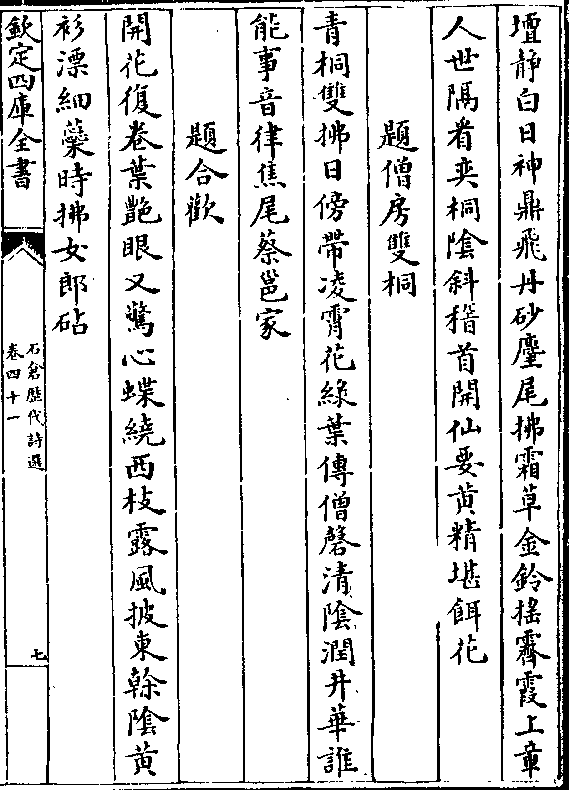 壇靜白日神鼎飛丹砂麈尾拂霜草金鈴搖霽霞上章
人世隔看奕桐陰斜稽首開仙要黃精堪餌花
題僧房雙桐
青桐雙拂日傍帶凌霄花綠葉傳僧磬清陰潤井華誰
能事音律焦尾蔡邕家
題合歡
開花復卷葉艷眼又驚心蝶繞西枝露風披東榦陰黃
衫漂細蘂時拂女郎砧
欽定四庫全書
石倉歷代詩選
卷四十一
七